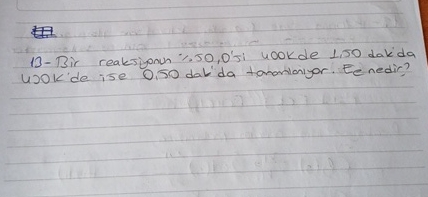 13- Bir reaksiyonun %50,0'si 400K de 1,50 dak'da
400K'de ise 0,50 dak'da tamamlanıyor. Ea nedir?